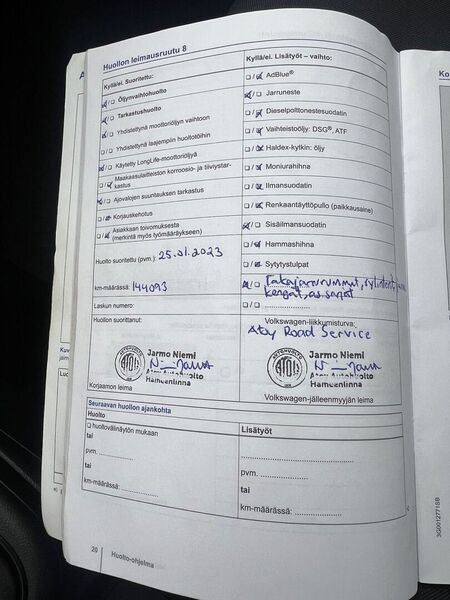 Huollon leimausruutu 8
Kyllä/ei. Suoritettu:
☑/☐ Öljynvaihtohuolto
☑/☐ Tarkastushuolto
☑/☐ Yhdistettynä moottoriöljyn vaihtoon
☐/☐ Yhdistettynä laajempiin huoltotöihin
☑/☐ Käytetty LongLife-moottoriöljyä
☐/☑ Maakaasulaitteiston korroosio- ja tiiviystar-
kastus
☑/☐ Ajovalojen suuntauksen tarkastus
☐/☑ Korjauskehotus
☐/☑ Asiakkaan toivomuksesta
(merkintä myös työmääräykseen)
Huolto suoritettu (pvm.): 25.01.2023
km-määrässä: 144093
Laskun numero:
Huollon suorittanut:
Jarmo Niemi
Atoy Autohuolto
Hämeenlinna
Korjaamon leima
Kyllä/ei. Lisätyöt – vaihto:
☐/☑ AdBlue®
☑/☐ Jarruneste
☐/☑ Dieselpolttonestesuodatin
☐/☑ Vaihteistoöljy: DSG®, ATF
☐/☑ Haldex-kytkin: öljy
☐/☑ Moniurahihna
☐/☑ Ilmansuodatin
☐/☑ Renkaantäyttöpullo (paikkausaine)
☑/☐ Sisäilmansuodatin
☐/☑ Hammashihna
☐/☑ Sytytystulpat
☑/☐ Takajarrurummut, sylinterit,
kengät, as.sarjat
☐/☐
Volkswagen-liikkumisturva:
Atoy Road Service
Jarmo Niemi
Atoy Autohuolto
Hämeenlinna
Volkswagen-jälleenmyyjän leima
Seuraavan huollon ajankohta
Huolto
☐ huoltovälinäytön mukaan
tai
pvm.
tai
km-määrässä:
Lisätyöt
pvm.
tai
km-määrässä:
20
Huolto-ohjelma
3G0012771SB